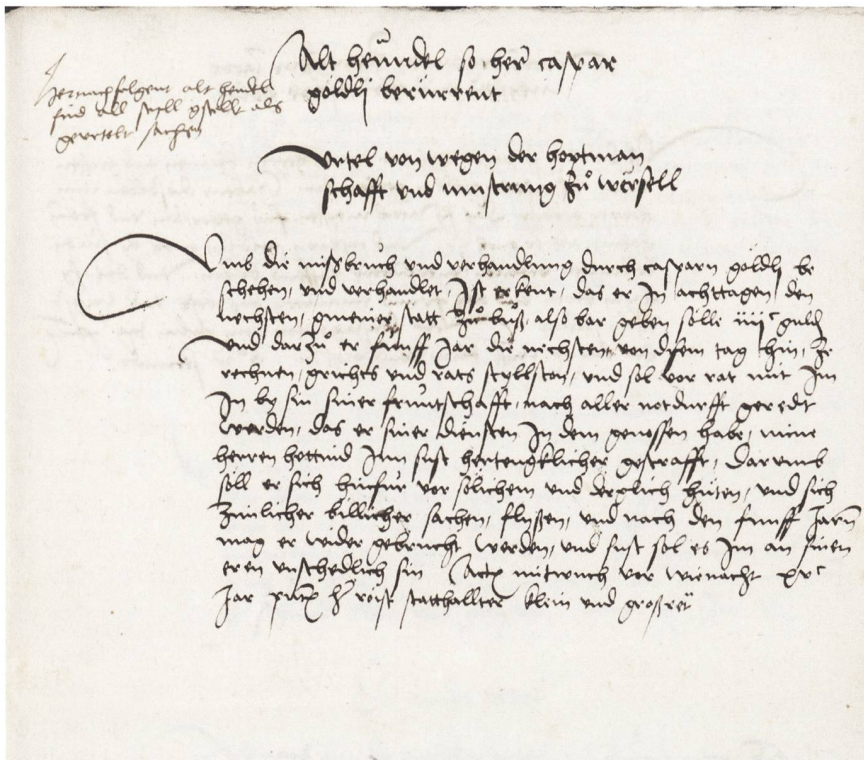 Alt henndel so her caspar
göldlj berürrent
Hernachfolgent alt hendel
sind all styll gstellt als
gevrtelt sachen
Vrtel von wegen der hoptman
schafft vnd mustrung zů wersell
Vmb die mißbruch vnd verhandlung durch casparn göldly be
schehen, vnd verhandlet, Ist erkent, das er In achttagen, den
nechsten, gmeiner statt zů bůß, also bar geben sölle iiijᶜ guld
vnd darzů er fünff Jar die nechsten, von disem tag hin, ze
rechnen, grichts vnd rats styllston, vnd sol vor rat mit Im
In by sin siner fruntschafft, nach aller notdurfft geredt
werden, das er siner diensten In dem genossen habe, mine
herren hettind Inn sust hertengklicher gestrafft, darumb
söll er sich hinfür vor sölichem vnd derglich hüten, vnd sich
zimlicher billicher sachen, flyßen, vnd nach den fünff Jarn
mag er wider gebrucht werden, vnd sust sol es Im an sinen
eren vnschedlich sin Actum mitwuch vor wienacht xvᶜ
Jar h röist statthallter klein vnd großrät